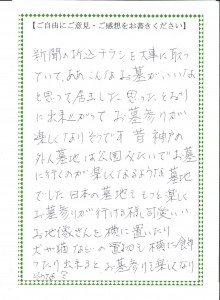 【ご自由にご意見・ご感想をお書きください】
新聞の折込チラシを大事に取っ
ていて、ああこんなお墓がいいな
と思って居ました 思ったとおり
に出来上がって お墓参りが
楽しくなりそうです 昔 神戸の
外人墓地は公園みたいでお墓
に行くのが楽しくなるような墓地
でした 日本の墓地も もっと楽しく
お墓参りが行ける様 可愛いい
お地像さんを横に置いたり
犬や猫などの置物を横に飾
ったり出来ると お墓参りも楽しくなり